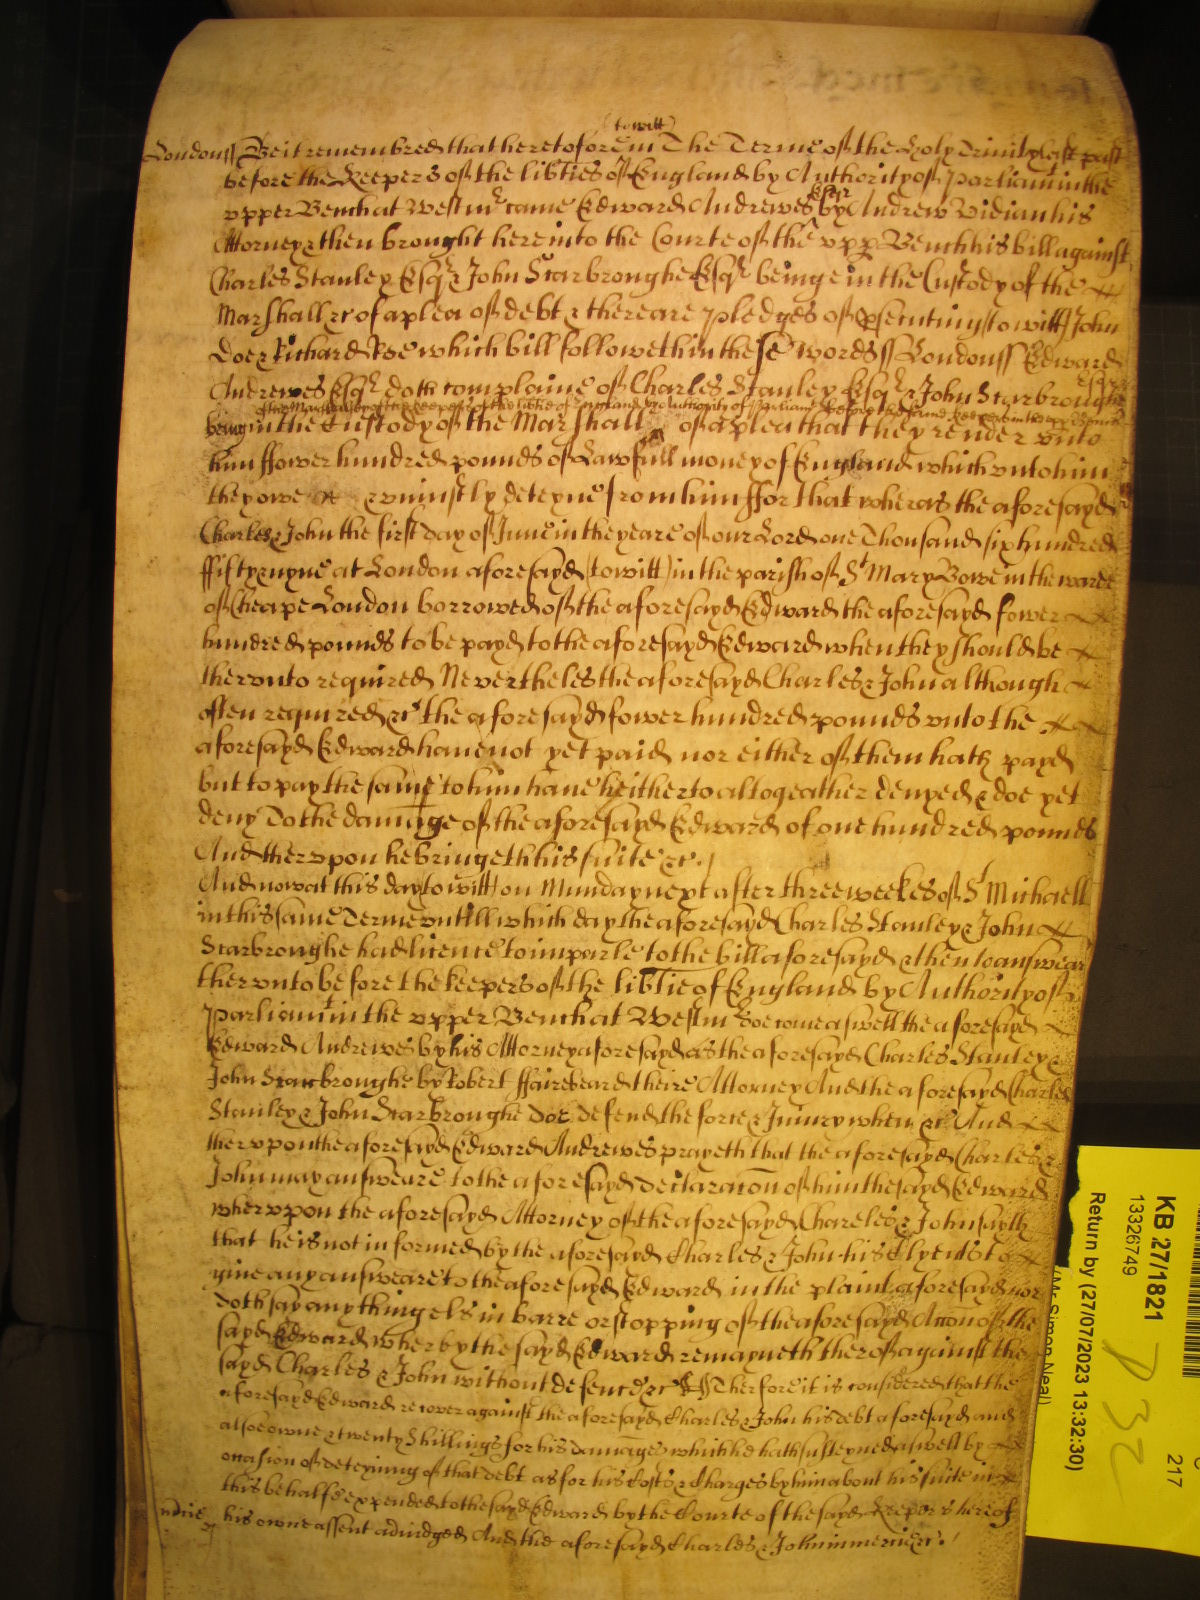 (to witt)
London ss Be it remembred that heretofore in The Terme of the Holy Trinity last past
before the Keepers of the libties of England by Authority of Parliamt in the
vpper Bench at Westmr came Edward Andrewes Esqr by Andrew Vidian his
Attorney & then brought here into the Courte of the vpp Bench his bill against
Charles Stanley Esqr & John Scarbroughe Esqr beinge in the Custody of the
Marshall &c of a plea of debt & there are pledges of psecuting (to witt) John
Doe & Richard Roe which bill followeth in these words ss London ss Edward
Andrewes Esqr doth complaine of Charles Stanley Esqr & John Scarbroughe Esqr
of the Marshalsey of the keepers of the libtie of England by Authority of Parliamt before the same keepers in the upp Bench
being in the Custody of the Marshall of a plea that they render vnto
him ffower hundred pounds of Lawfull money of England which vnto him
they owe & vniustly deteyne from him ffor that wheras the aforesayd
Charles & John the first day of June in the yeare of our Lord one Thousand six hundred
ffifty & nyne at London aforesayd (to witt) in the parish of St Mary Bowe in the warde
of Cheape London borrowed of the aforesayd Edward the aforesayd fower
hundred pounds to be payd to the aforesayd Edward when they should be
thervnto required Nevertheles the aforesayd Charles & John although
often required &c the aforesayd fower hundred pounds vnto the
aforesayd Edward haue not yet paid nor either of them hath payd
but to pay the same to him haue heitherto altogeather denyed & doe yet
deny To the damage of the aforesayd Edward of one hundred pounds
And thervpon he bringeth his suite &c.
And now at this day (to witt) on Munday next after three weekes of St Michaell
in this same Terme vntill which day the aforesayd Charles Stanley & John
Scarbroughe had licence to imparle to the bill aforesayd & then to answear
thervnto before the keepers of the libtie of England by Authority of
Parliamt in the vpper Bench at Westmr doe come aswell the aforesayd
Edward Andrewes by his Attorney aforesayd as the aforesayd Charles Stanley &
John Scarbroughe by Robert ffairebeard theire Attorney And the aforesayd Charles
Stanley & John Scarbroughe doe defend the force & Iniury when &c And
thervpon the aforesayd Edward Andrewes prayeth that the aforesayd Charles &
John may answeare to the aforesayd declaracon of him the sayd Edward
whervpon the aforesayd Attorney of the aforesayd Chareles & John sayth
that he is not informed by the aforesayd Charles & John his Clyents to
giue any answeare to the aforesayd Edward in the plaint aforesayd nor
doth say any thing els in barre or stopping of the aforesayd Accon of the
sayd Edward wherby the sayd Edward remayneth therof against the
sayd Charles & John without defence &c Therfore it is considered that the
aforesayd Edward recover against the aforesayd Charles & John his debt aforesayd and
alsoe owne & twenty Shillings for his damages which he hath susteyned aswell by
occasion of deteyning of that debt as for his Costs & Charges by him about his suite in
this behalfe expended to the sayd Edward by the Courte of the sayd Keepers here of
his owne assent adiudged And the aforesayd Charles & John in mercie &c.
KB 27/1821
13326749
217
Return by (27/07/2023 13:32:30)
(Mr Simon Neal)